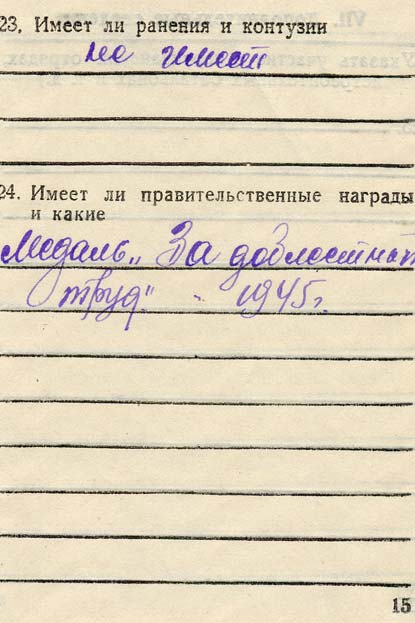 23. Имеет ли ранения и контузии
не имеет
24. Имеет ли правительственные награды
и какие
Медаль „За доблестный
труд" - 1945 г.
15